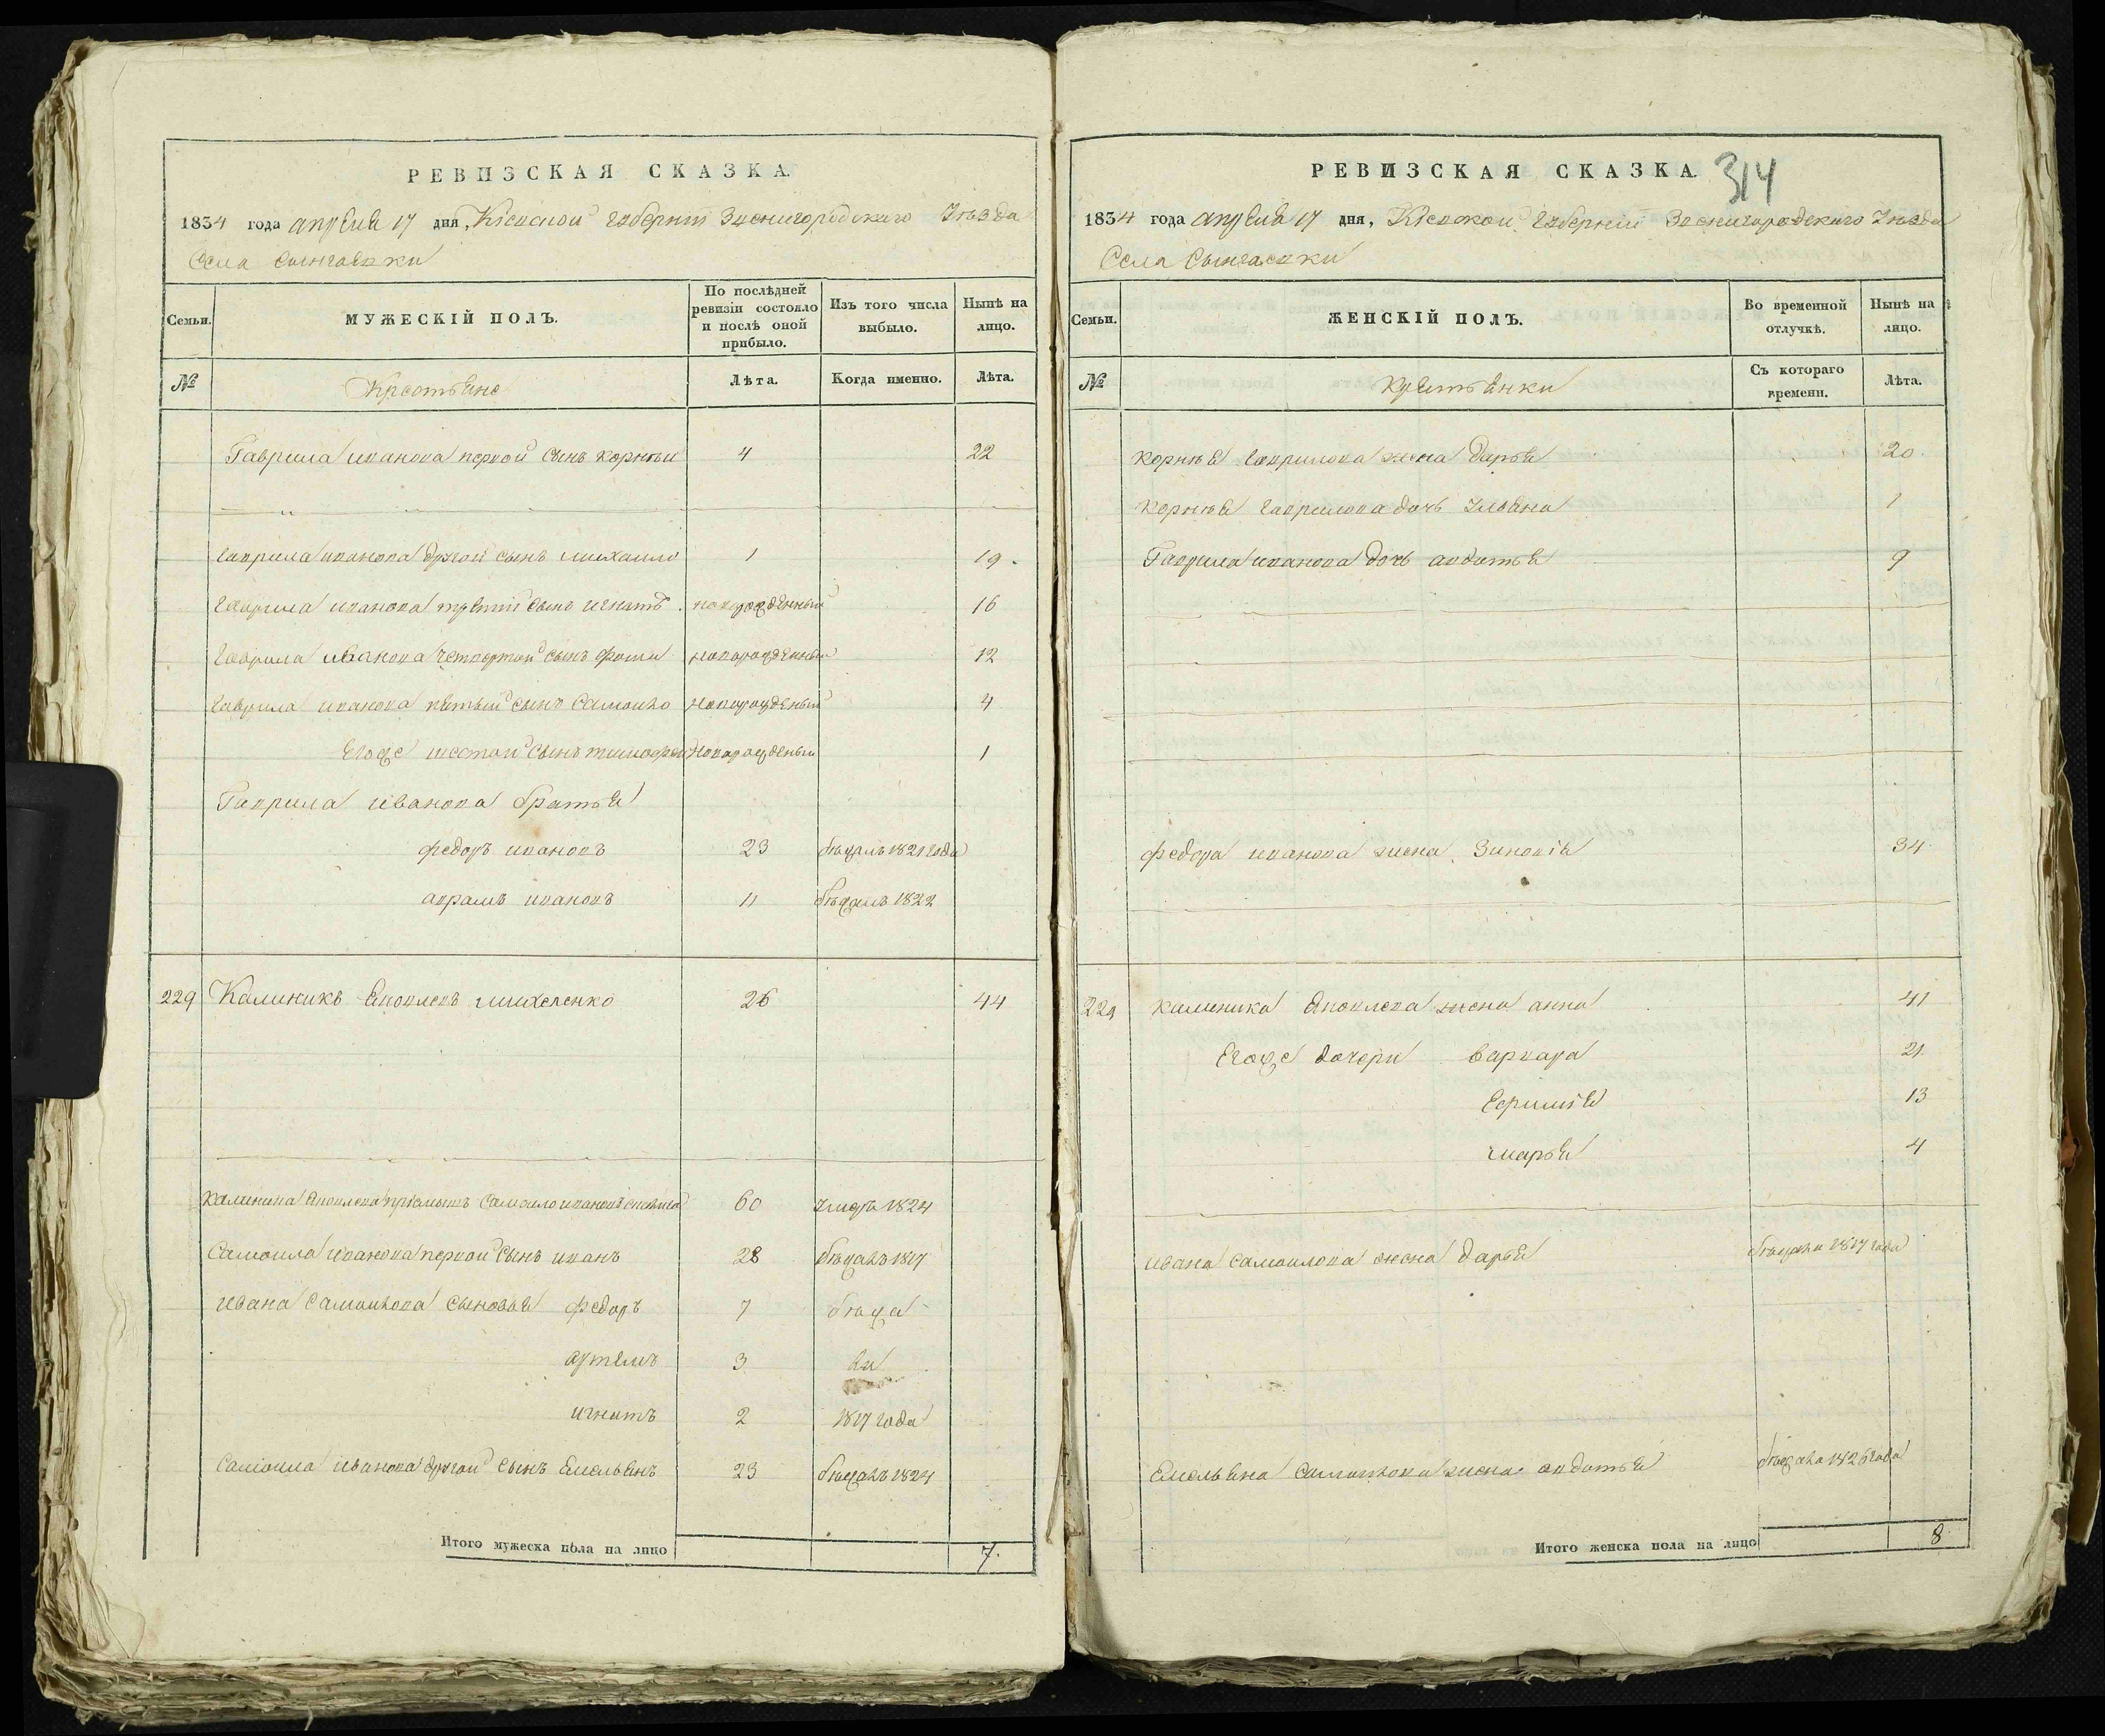 РЕВИЗСКАЯ СКАЗКА.
1834 года апреля 17 дня, Кіевской губерніи Звенигородского Уезда
Села
Семьи.
МУЖЕСКІЙ ПОЛЪ.
По послѣдней ревизіи состояло и послѣ оной прибыло.
Изъ того числа выбыло.
Нынѣ на лицо.
№
Крестьяне
Лѣта.
Когда именно.
Лѣта.
Гаврила иванова первой сынъ корнѣй 4 22
гаврила иванова другой сынъ михайло 1 19.
гаврила иванова третій сынъ игнатъ новорожденный 16
гаврила иванова четвертой сынъ фома новорожденный 12
гаврила иванова пятый сынъ самойло новорожденый 4
Егоже шестой сынъ тимофей новорожденый 1
Гаврила иванова братья
федоръ ивановъ 23 бѣжалъ 1821 года
аврамъ ивановъ 11 бѣжалъ 1822
229 Калиникъ Яковлевъ михеленко 26 44
Калиника Яковлева пріемышъ самойло ивановъ 60 умеръ 1824
Самойла иванова первой сынъ иванъ 28 бѣжалъ 1817
ивана самойлова сыновья федоръ 7 бѣжа
артемъ 3 ли
игнатъ 2 1817 года
самойла иванова другой сынъ Емельянъ 23 бѣжалъ 1824
Итого мужеска пола на лицо 7.
РЕВИЗСКАЯ СКАЗКА.
314
1834 года апреля 17 дня, Кіевской губерніи Звенигородского Уезда
Села
Семьи.
ЖЕНСКІЙ ПОЛЪ.
Во временной отлучкѣ.
Нынѣ на лицо.
№
крестьянки
Съ котораго времени.
Лѣта.
корнѣя гаврилова жена дарья 20.
корнѣя гаврилова дочь ульяна 1
Гаврила иванова дочь авдотья 9
федора иванова жена зиновія 34
229 калиника Яковлева жена анна 41
Егоже дочери варвара 21.
Ефимія 13
марья 4
ивана самойлова жена дарья бѣжала 1817 года
Емельяна самойлова жена авдотья бѣжала 1826 года
Итого женска пола на лицо 8